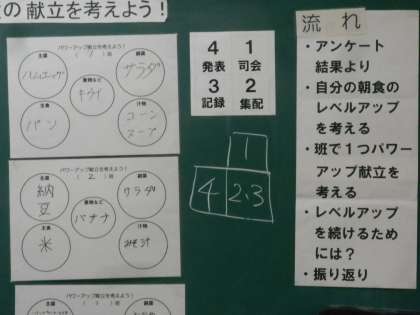 の 献立を考えよう!
パワーアップ献立を考えよう!
(1)班
主菜
ハムエッグ
副菜
サラダ
果物など
キウイ
主食
パン
汁物
コーン
スープ
パワーアップ献立を考えよう!
(2)班
主菜
納
豆
副菜
サラダ
果物など
バナナ
主食
米
汁物
みそ汁
パワーアップ献立を考えよう!
主菜
副菜
4
発表
1
司会
3
記録
2
集配
1
4
2・3
流れ
・アンケート
結果より
・自分の朝食の
レベルアップ
を考える
・班で1つパワー
アップ献立を
考える
・レベルアップ
を続けるため
には?
・振り返り